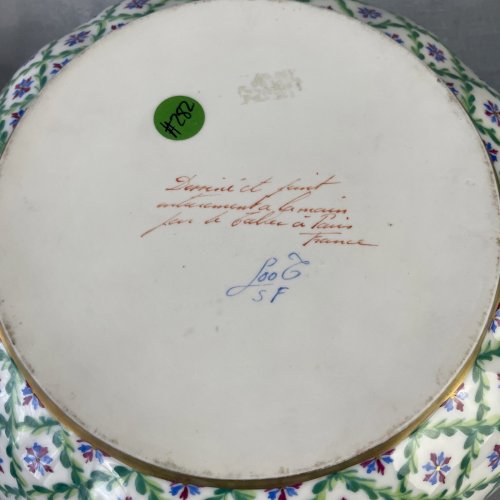 #282
Dessiné et peint
entierement a la main
par le Tallec à Paris
France
SF